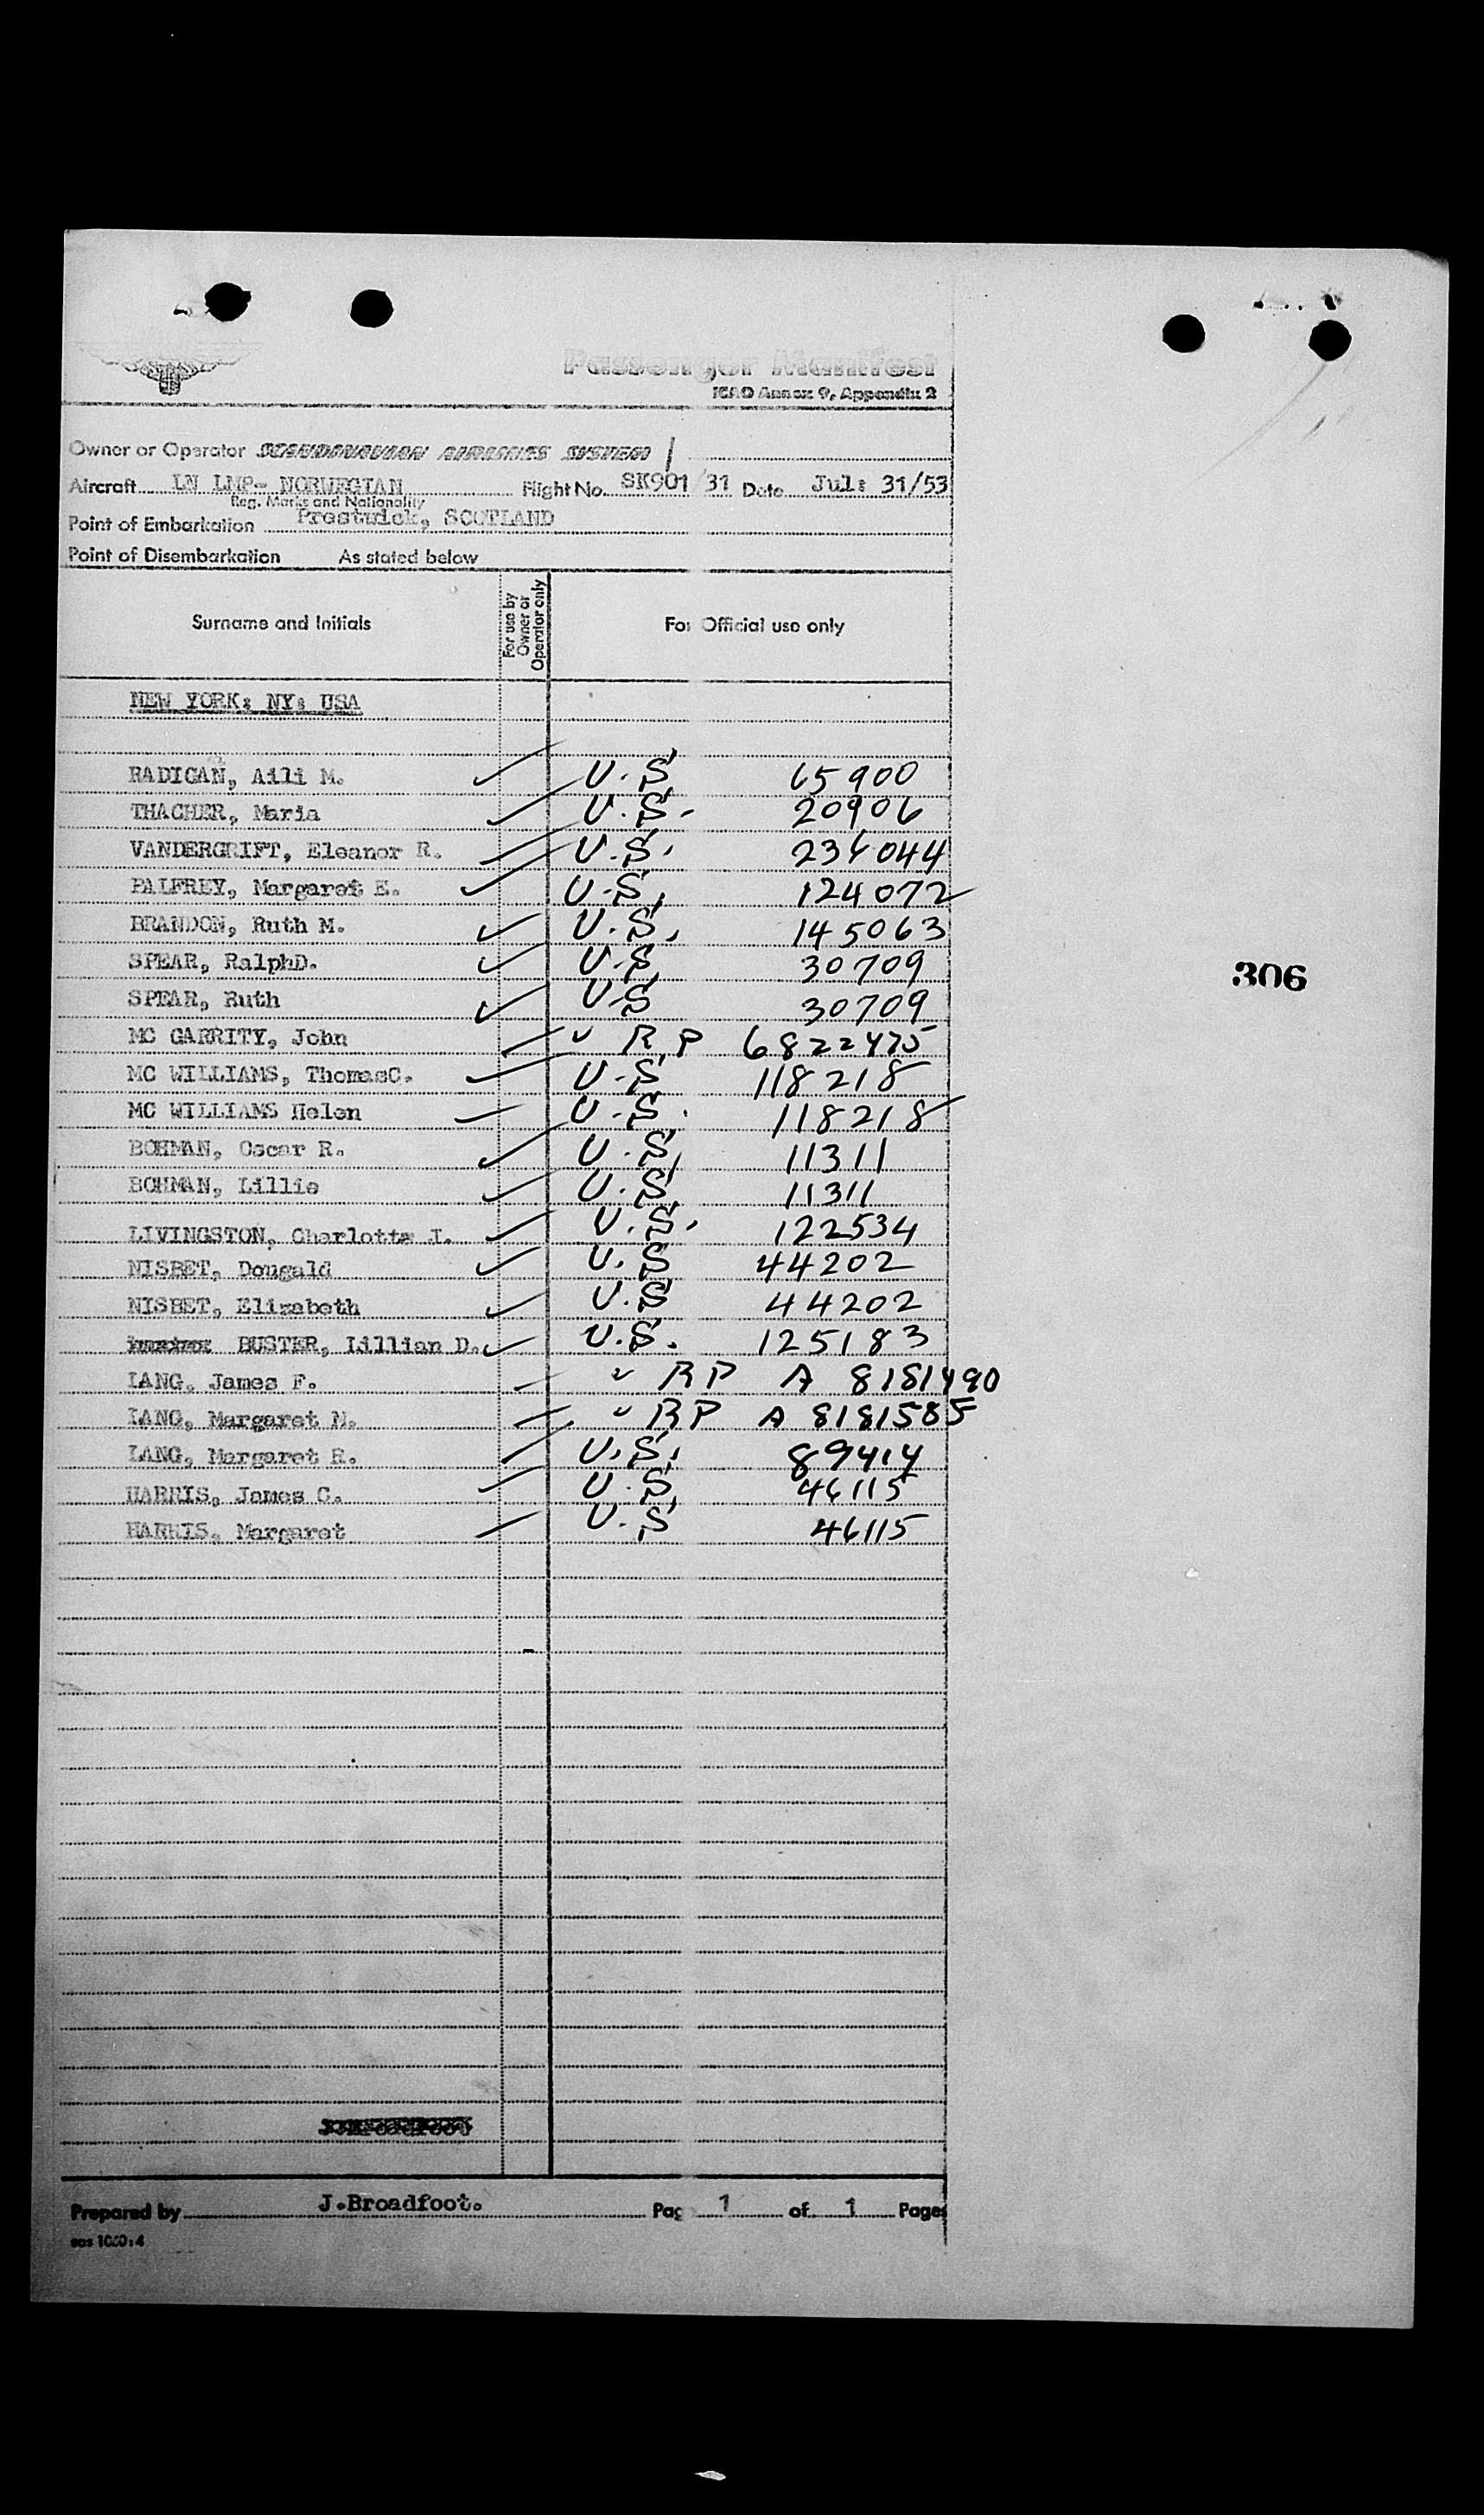 Passenger Manifest
ICAO Annex 9, Appendix 2
Owner or Operator SCANDINAVIAN AIRLINES SYSTEM
Aircraft LN LMP- NORWEGIAN Flight No. SK901/31 Date Jul: 31/53
Reg. Marks and Nationality
Point of Embarkation Prestwick, SCOTLAND
Point of Disembarkation As stated below
Surname and Initials For use by Owner or Operator only For Official use only
NEW YORK: NY: USA
RADIGAN, Aili M. U.S. 65900
THACHER, Maria U.S. 20906
VANDERGRIFT, Eleanor R. U.S. 234044
PALFREY, Margaret E. U.S. 124072
BRANDON, Ruth M. U.S. 145063
306
SPEAR, RalphD. U.S. 30709
SPEAR, Ruth U.S 30709
MC GARRITY, John RP 6822475
MC WILLIAMS, ThomasC. U.S 118218
MC WILLIAMS Helen U.S. 118218
BOHMAN, Oscar R. U.S. 11311
BOHMAN, Lillie U.S. 11311
LIVINGSTON, Charlotte I. U.S. 122534
NISBET, Dougald U.S 44202
NISBET, Elizabeth U.S 44202
BUSTER, Lillian D. U.S. 125183
LANG, James F. RP A 8181490
LANG, Margaret M. RP A 8181585
LANG, Margaret R. U.S. 89414
HARRIS, James C. U.S. 46115
HARRIS, Margaret U.S 46115
Prepared by J.Broadfoot. Pag 1 of 1 Pages